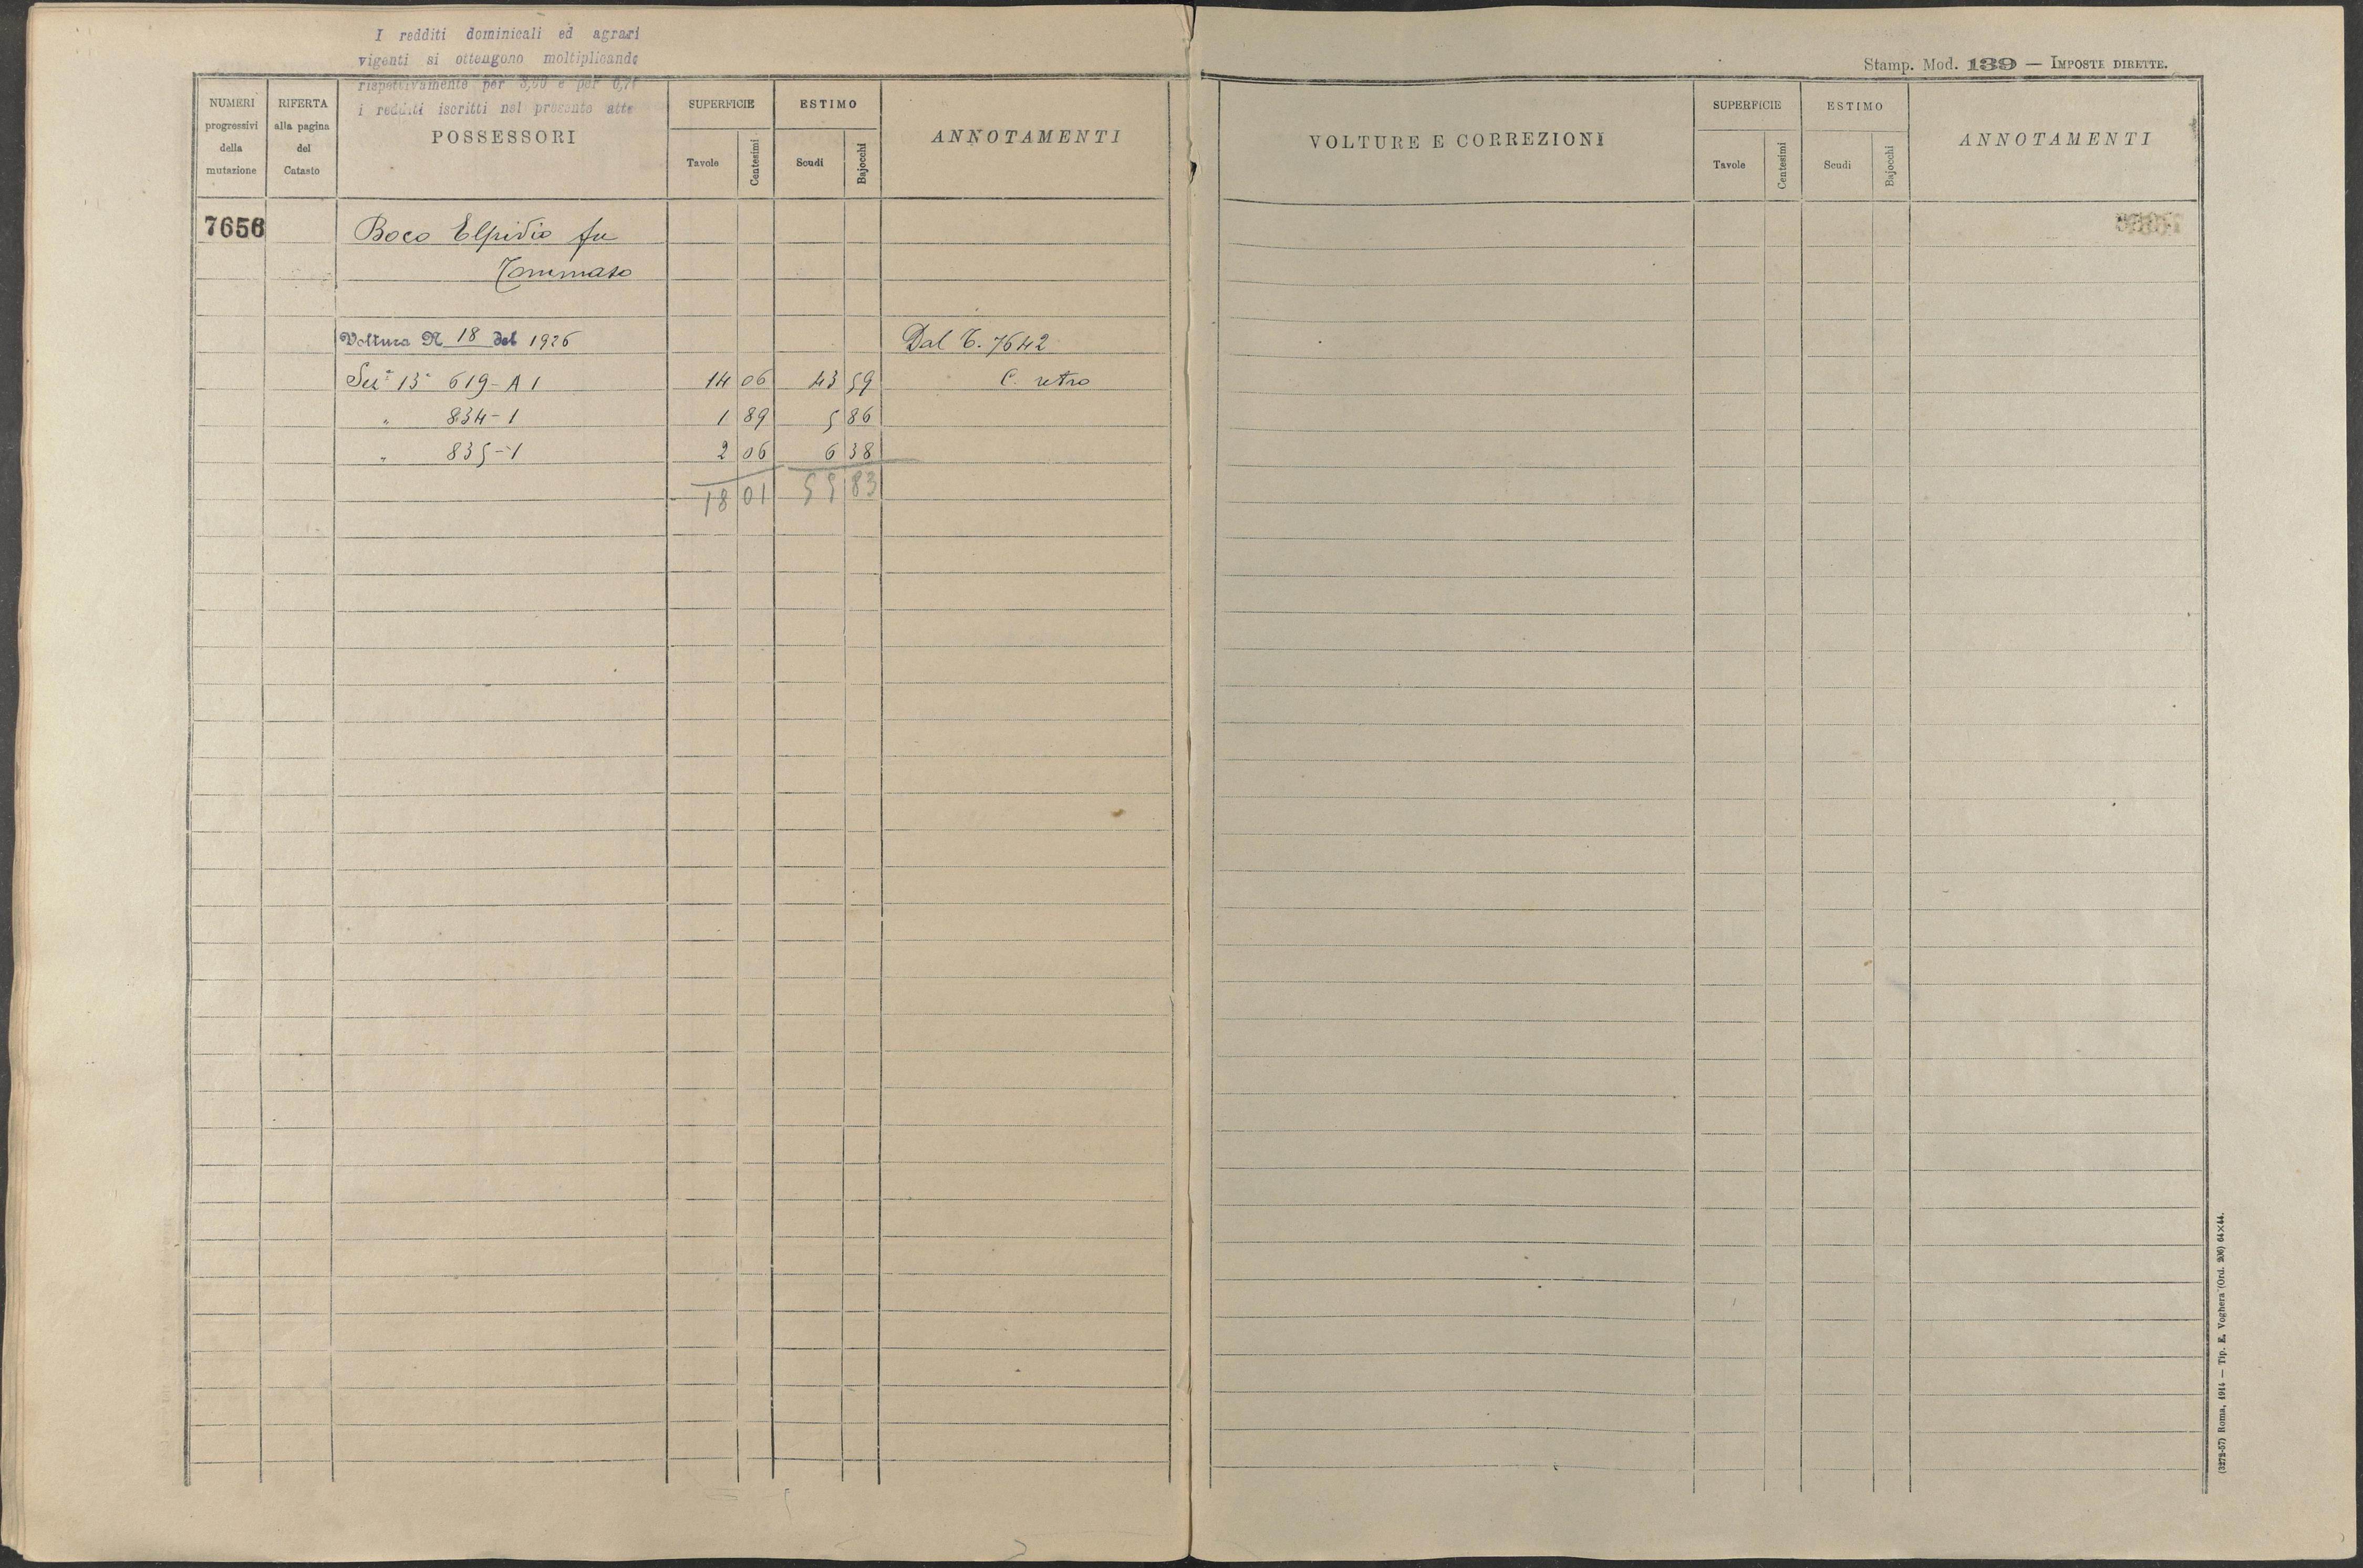 I redditi dominicali ed agrari
vigenti si ottengono moltiplicando
rispettivamente per 3,60 e per 0,7
i redditi iscritti nel presente atto
NUMERI progressivi della mutazione
RIFERTA alla pagina del Catasto
POSSESSORI
SUPERFICIE
Tavole
Centesimi
ESTIMO
Scudi
Bajocchi
ANNOTAMENTI
7656
Boco Elpidio fu
Tommaso
Voltura N. 18 del 1926
Dal T. 7642
Sez.e 13a 619-A 1 14 06 43 59 C. retro
" 834-1 1 89 5 86
" 835-1 2 06 6 38
18 01 55 83
Stamp. Mod. 139 — IMPOSTE DIRETTE.
VOLTURE E CORREZIONI
SUPERFICIE
Tavole
Centesimi
ESTIMO
Scudi
Bajocchi
ANNOTAMENTI
(3272-57) Roma, 1914 — Tip. E. Voghera (Ord. 206) 64×44.